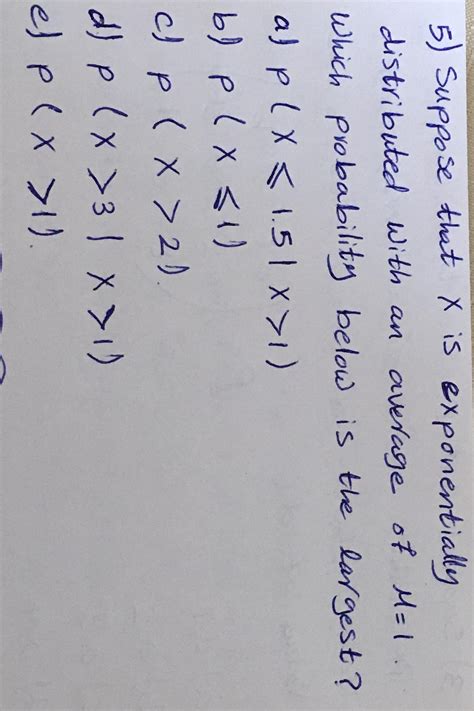 5) Suppose that X is exponentially
distributed with an average of M=1.
Which probability below is the largest?
a) P(X ≤ 1.5 | X > 1)
b) P(X ≤ 1)
c) P(X > 2)
d) P(X > 3 | X > 1)
e) P(X > 1).